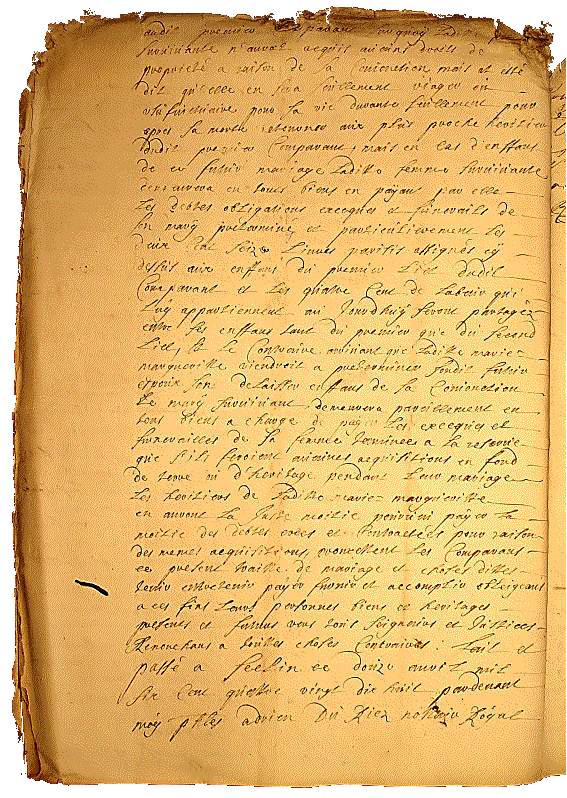 dudit premier Comparant ladite
survivante n'aurat acquis aucuns droits de
propriété a raison de sa Conionction mais at esté
dit qu'elle en sera seullement viager ou
usufructuaire pour sa vie durante seullement pour
apres sa morte retourner aux plus proche heritier
dudit premier Comparant, mais en cas d'enffans
de ce futur mariage Laditte femme survivante
demeurera en tous biens en payant par elle
Les debtes obligations execques et funerails de
son mary predeterminé et particulierement Les
deux Cent seize Livres parisis assignés cy
dessus aux enffans du premier Lict dudit
Comparant et Les quatre Cent de Labeur qui
Luy appartiennent au Jourd'huy seront partagéz
entre Les enffans tant du premier que du second
Lict, Et Le Contraire arrivant que Laditte marie
margueritte viendroit a predeterminer sondit futur
espoux sans delaisser enffans de sa Conionction
Le mary survivant demeurera pareillement en
tous biens a charge de payer Les execques et
funerailles de sa femme terminee a la reserve
que s'ils feroient aucunes acquisitions en fond
de terre ou d'heritage pendant Leur mariage
Les heritiers de Laditte marie margueritte
en auront La Juste moitie parmi payer La
moitie des debtes crees et Contractées pour raison
des memes acquisitions promettent Les Comparans
ce present traitte de mariage et choses dittes
tenir entretenir payer furnir et accomplir obligeans
a ces fins Leurs personnes biens et heritages
presens et futurs vers tous seigneurs et Justices
Renonchans a touttes choses Contraires: fait et
passé a Seclin ce douze avril mil
six Cent quattre vingt dix huit pardevant
moy adrien Du Riez nottaire Royal